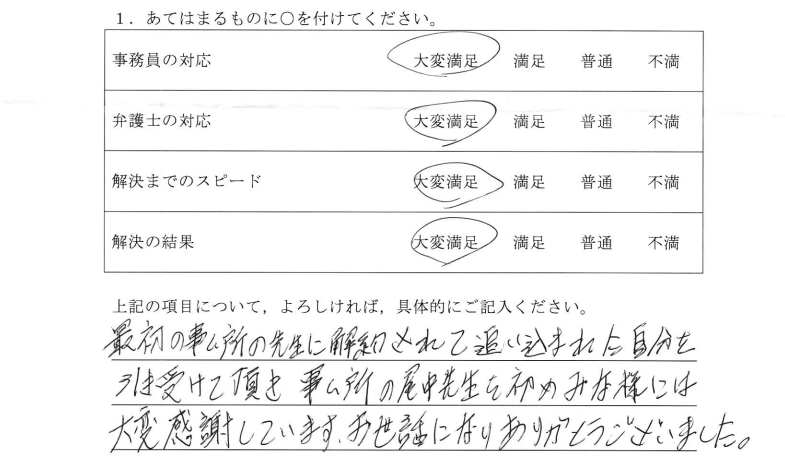 １．あてはまるものに○を付けてください。
事務員の対応 大変満足 満足 普通 不満
弁護士の対応 大変満足 満足 普通 不満
解決までのスピード 大変満足 満足 普通 不満
解決の結果 大変満足 満足 普通 不満
上記の項目について，よろしければ，具体的にご記入ください。
最初の事ム所の先生に解約されて追い込まれた自分を
引き受けて頂き 事ム所の尾中先生を初めみな様には
大変感謝しています。お世話になりありがとうございました。